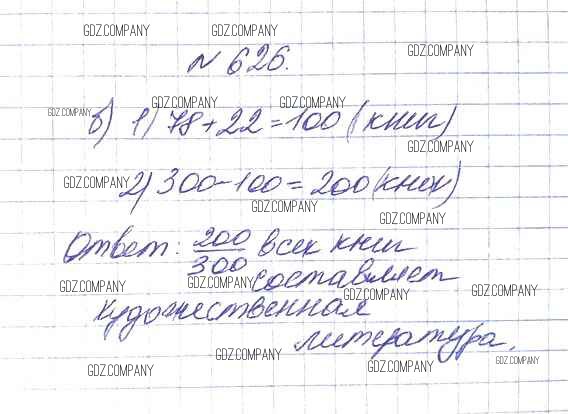 GDZ.COMPANY GDZ.COMPANY
GDZ.COMPANY
№ 626.
GDZ.COMPANY GDZ.COMPANY
GDZ.COMPANY
б) 1) 78+22=100 (книг)
GDZ.COMPANY
GDZ.COMPANY
2) 300-100=200 (книг)
GDZ.COMPANY
GDZ.COMPANY
Ответ: 200/300 всех книг
составляет
GDZ.COMPANY GDZ.COMPANY GDZ.COMPANY GDZ.COMPANY
художественная
литература.
GDZ.COMPANY GDZ.COMPANY
GDZ.COMPANY GDZ.COMPANY